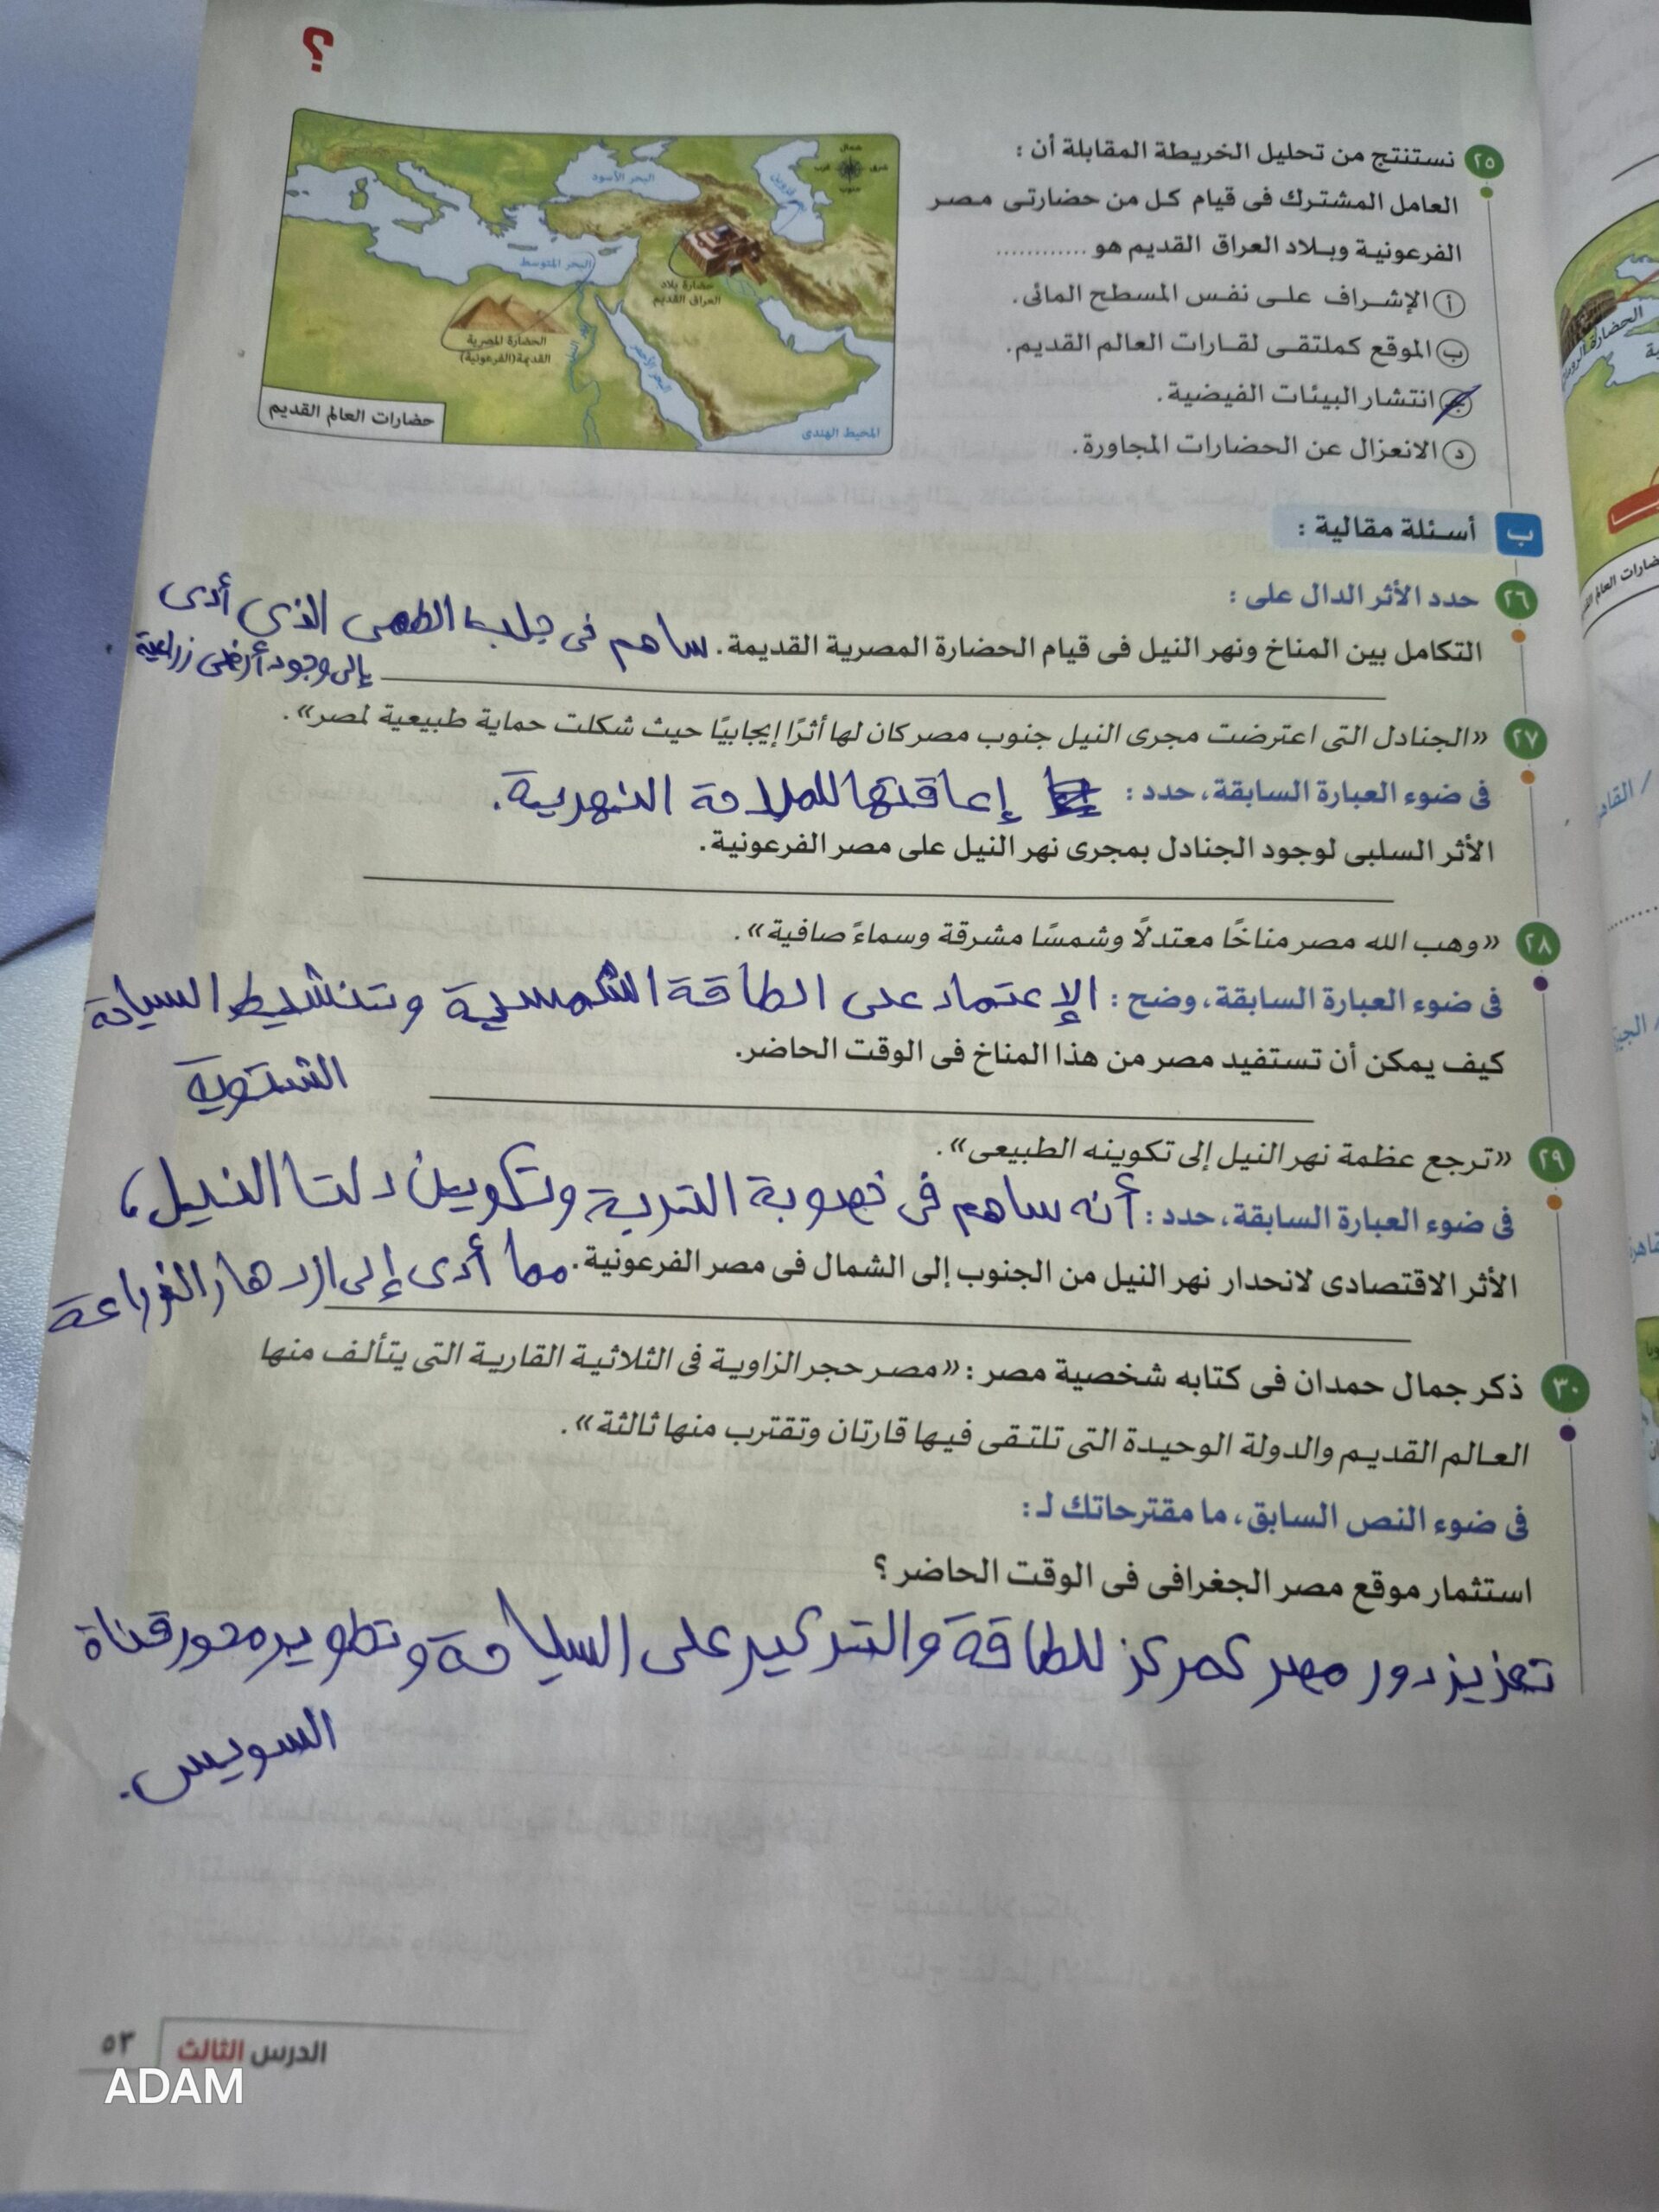 ؟
٢٥ نستنتج من تحليل الخريطة المقابلة أن :
العامل المشترك فى قيام كل من حضارتى مصر
الفرعونية وبلاد العراق القديم هو ............
أ الإشراف على نفس المسطح المائى.
ب الموقع كملتقى لقارات العالم القديم.
ج انتشار البيئات الفيضية.
د الانعزال عن الحضارات المجاورة.
شمال
شرق
غرب
جنوب
البحر الأسود
بحر قزوين
البحر المتوسط
حضارة بلاد
العراق القديم
الحضارة المصرية
القديمة (الفرعونية)
نهر النيل
البحر الأحمر
المحيط الهندى
حضارات العالم القديم
ب أسئلة مقالية :
٢٦ حدد الأثر الدال على :
التكامل بين المناخ ونهر النيل فى قيام الحضارة المصرية القديمة. ساهم فى جلب الطمى الذى أدى
إلى وجود أرض زراعية
٢٧ «الجنادل التى اعترضت مجرى النيل جنوب مصر كان لها أثرًا إيجابيًا حيث شكلت حماية طبيعية لمصر».
فى ضوء العبارة السابقة، حدد : إعاقتها للملاحة النهرية.
الأثر السلبى لوجود الجنادل بمجرى نهر النيل على مصر الفرعونية.
٢٨ «وهب الله مصر مناخًا معتدلًا وشمسًا مشرقة وسماءً صافية».
فى ضوء العبارة السابقة، وضح : الإعتماد على الطاقة الشمسية وتنشيط السياحة
الشتوية
كيف يمكن أن تستفيد مصر من هذا المناخ فى الوقت الحاضر.
٢٩ «ترجع عظمة نهر النيل إلى تكوينه الطبيعى».
فى ضوء العبارة السابقة، حدد : أنه ساهم فى خصوبة التربة وتكوين دلتا النيل،
الأثر الاقتصادى لانحدار نهر النيل من الجنوب إلى الشمال فى مصر الفرعونية. مما أدى إلى ازدهار الزراعة
٣٠ ذكر جمال حمدان فى كتابه شخصية مصر : «مصر حجر الزاوية فى الثلاثية القارية التى يتألف منها
العالم القديم والدولة الوحيدة التى تلتقى فيها قارتان وتقترب منها ثالثة».
فى ضوء النص السابق، ما مقترحاتك لـ :
استثمار موقع مصر الجغرافى فى الوقت الحاضر ؟
تعزيز دور مصر كمركز للطاقة والتركيز على السياحة وتطوير محور قناة
السويس.
الدرس الثالث
٥٣
ADAM